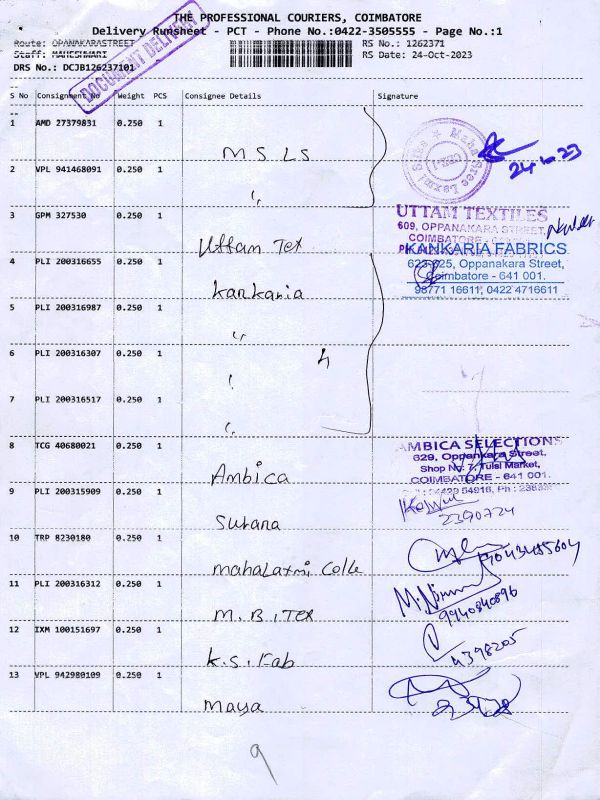 THE PROFESSIONAL COURIERS, COIMBATORE
Delivery Runsheet - PCT - Phone No.:0422-3505555 - Page No.:1
Route: OPANAKARASTREET
RS No.: 1262371
Staff: MAHESHWARI
RS Date: 24-Oct-2023
DRS No.: DCJB126237101
DOCUMENT DELIVERY
S No Consignment No Weight PCS Consignee Details Signature
1 AMD 27379831 0.250 1
M S LS
24 10 23
2 VPL 941468091 0.250 1
〃
3 GPM 327530 0.250 1
Uttam Tex
UTTAM TEXTILES
609, OPPANAKARA STREET,
COIMBATORE
4 PLI 200316655 0.250 1
Kankaria
KANKARIA FABRICS
623-625, Oppanakara Street,
Coimbatore - 641 001.
98771 16611, 0422 4716611
5 PLI 200316987 0.250 1
〃
6 PLI 200316307 0.250 1
4
7 PLI 200316517 0.250 1
〃
8 TCG 40680021 0.250 1
Ambica
AMBICA SELECTIONS
629, Oppankara Street,
Shop No: 7, Tulsi Market,
COIMBATORE - 641 001.
9 PLI 200315909 0.250 1
Surana
2390724
10 TRP 8230180 0.250 1
mahalaxmi Colle
11 PLI 200316312 0.250 1
M.B. Tex
9940840896
12 IXM 100151697 0.250 1
K.S. Fab
4398205
13 VPL 942980109 0.250 1
Maya
9